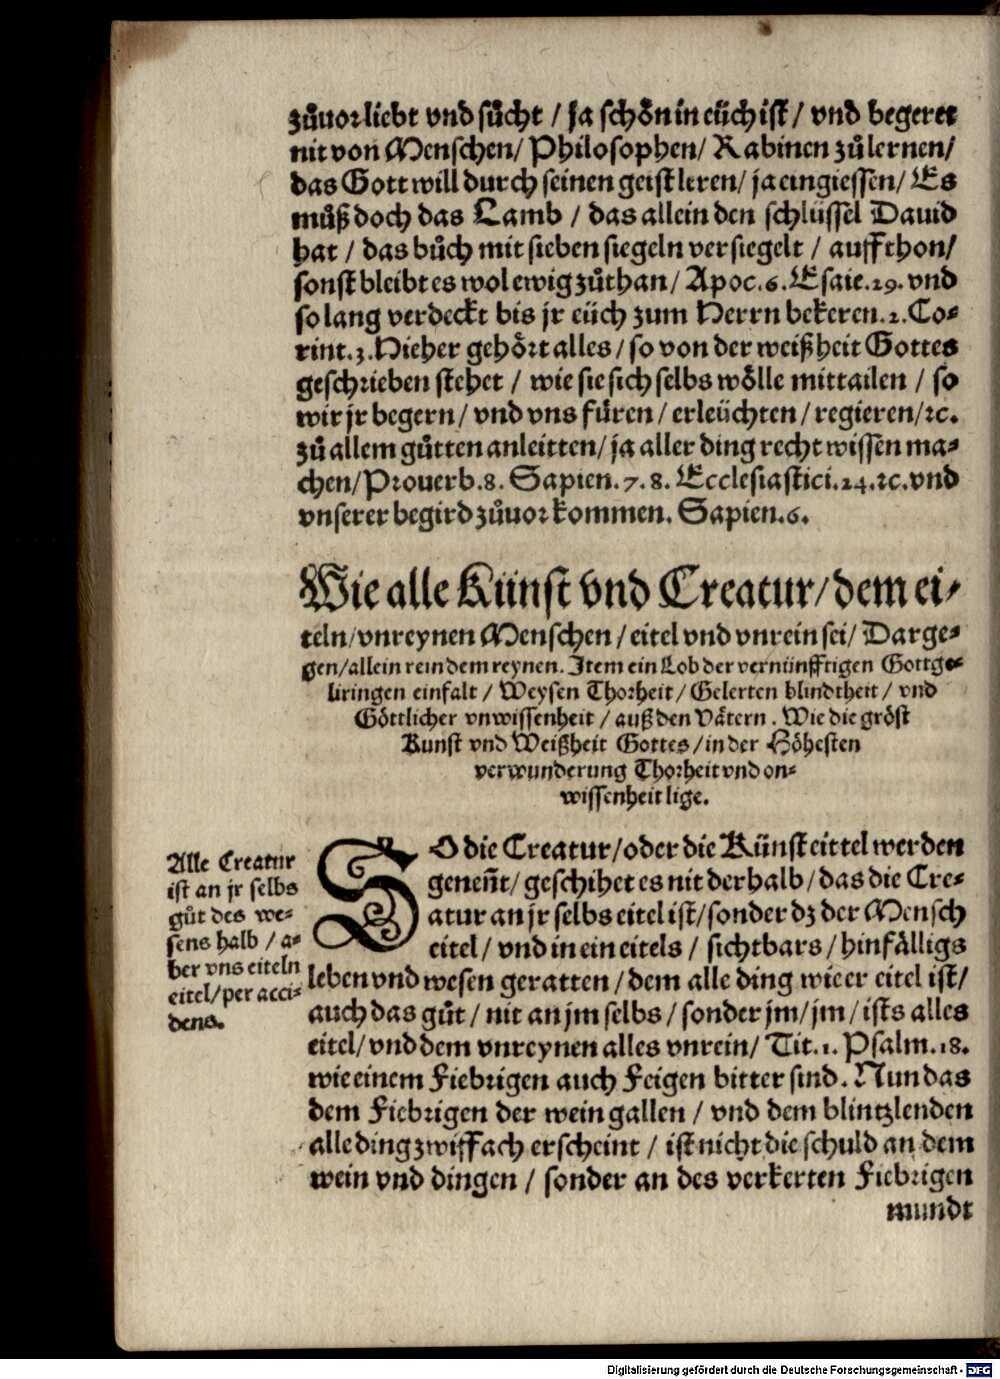 zůuor liebt vnd sůcht / ja schôn in eüch ist / vnd begeret
nit von Menschen / Philosophen / Rabinen zů lernen /
das Gott will durch seinen geist leren / ja eingiessen / Es
můß doch das Lamb / das allein den schlüssel Dauid
hat / das bůch mit sieben siegeln versiegelt / auffthon /
sonst bleibt es wol ewig zůthan / Apoc. 6. Esaie. 29. vnd
so lang verdeckt bis jr eüch zum Herrn bekeren. 2. Co⸗
rint. 3. Hieher gehôrt alles / so von der weißheit Gottes
geschrieben stehet / wie sie sich selbs wôlle mittailen / so
wir jr begern / vnd vns füren / erleüchten / regieren / ꝛc.
zů allem gůtten anleitten / ja aller ding recht wissen ma⸗
chen / Prouerb. 8. Sapien. 7. 8. Ecclesiastici. 24. ꝛc. vnd
vnserer begird zůuor kommen. Sapien. 6.
Wie alle Künst vnd Creatur / dem ei⸗
teln / vnreynen Menschen / eitel vnd vnrein sei / Darge⸗
gen / allein rein dem reynen. Item ein Lob der vernünfftigen Gottge⸗
liringen einfalt / Weysen Thorheit / Gelerten blindtheit / vnd
Göttlicher vnwissenheit / auß den Vätern. Wie die gröst
Kunst vnd Weißheit Gottes / in der Höhesten
verwunderung Thorheit vnd on⸗
wissenheit lige.
Alle Creatur
ist an jr selbs
gůt des we⸗
sens halb / a⸗
ber vns eiteln
eitel / per acci⸗
dens.
SO die Creatur / oder die Künst eittel werden
geneñt / geschihet es nit derhalb / das die Cre⸗
atur an jr selbs eitel ist / sonder dz der Mensch
eitel / vnd in ein eitels / sichtbars / hinfälligs
leben vnd wesen geratten / dem alle ding wie er eitel ist /
auch das gůt / nit an jm selbs / sonder jm / jm / ists alles
eitel / vnd dem vnreynen alles vnrein / Tit. 1. Psalm. 18.
wie einem Fiebrigen auch Feigen bitter sind. Nun das
dem Fiebrigen der wein gallen / vnd dem blintzlenden
alle ding zwiffach erscheint / ist nicht die schuld an dem
wein vnd dingen / sonder an des verkerten Fiebrigen
mundt
Digitalisierung gefördert durch die Deutsche Forschungsgemeinschaft - DFG